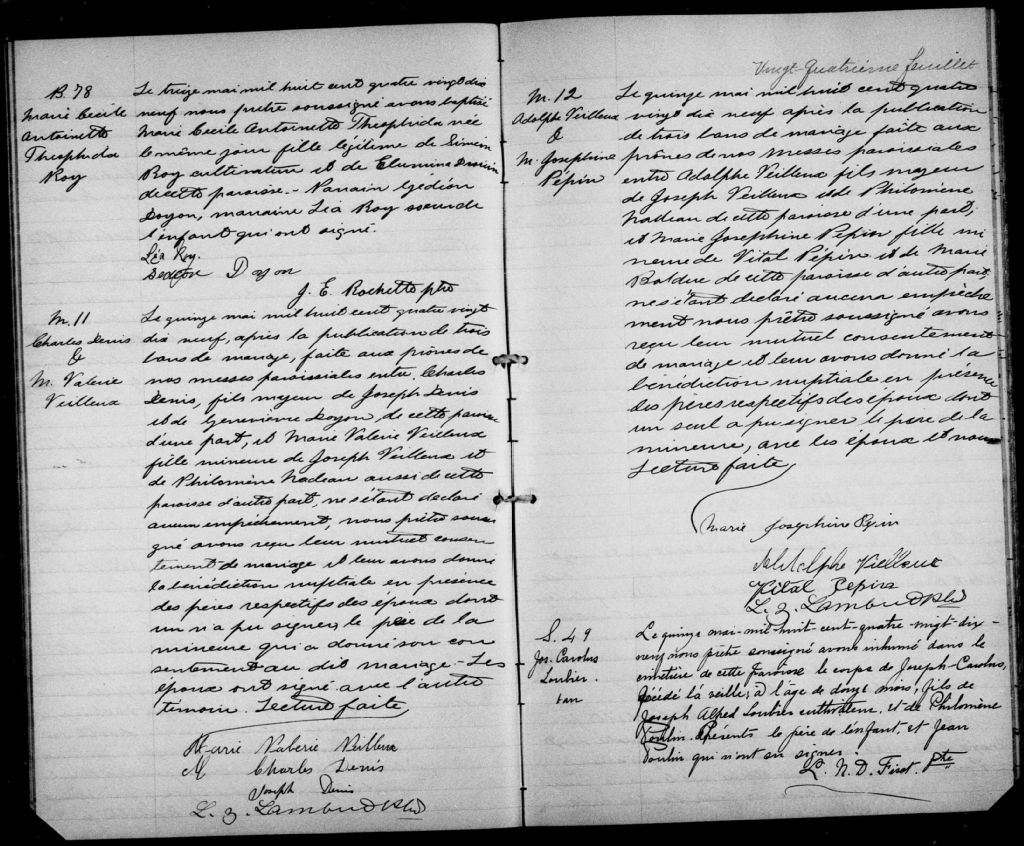 B. 78
Marie Cecile
Antoinette
Theophida
Roy
Le treize mai mil huit cent quatre vingt dix
neuf nous prêtre soussigné avons baptisé
Marie Cecile Antoinette Theophida née
le même jour fille légitime de Siméon
Roy cultivateur et de Elumina
de cette paroisse. - Parrain Gédéon
Doyon, marraine Léa Roy soeur de
l'enfant qui ont signé.
Léa Roy.
Gedeon Doyon
J. E. Rochette ptre
M. 11
Charles Denis
&
M. Valerie
Veilleux
Le quinze mai mil huit cent quatre vingt
dix neuf, après la publication de trois
bans de mariage, faite aux prônes de
nos messes paroissiales entre Charles
Denis, fils majeur de Joseph Denis
et de Genevieve Doyon, de cette paroisse
d'une part, et Marie Valerie Veilleux
fille mineure de Joseph Veilleux et
de Philomène Nadeau aussi de cette
paroisse d'autre part, ne s'étant declaré
aucun empêchement, nous prêtre soussi
gné avons reçu leur mutuel consen
tement de mariage et leur avons donné
la bénédiction nuptiale en présence
des pères respectifs des époux dont
un n'a pu signer, le père de la
mineure qui a donné son con
sentement au dit mariage - Les
époux ont signé avec l'autre
temoin. Lecture faite
Marie Valerie Veilleux
Charles Denis
Joseph Denis
Vingt-Quatrième feuillet
M. 12
Adolphe Veilleux
&
M. Josephine
Pépin
Le quinze mai mil huit cent quatre
vingt dix neuf après la publication
de trois bans de mariage faite aux
prônes de nos messes paroissiales
entre Adolphe Veilleux fils majeur
de Joseph Veilleux et de Philomène
Nadeau de cette paroisse d'une part,
et Marie Josephine Pépin fille mi
neure de Vital Pépin et de Marie
Bolduc de cette paroisse d'autre part
ne s'étant declaré aucun empêche
ment nous prêtre soussigné avons
reçu leur mutuel consentement
de mariage et leur avons donné la
bénédiction nuptiale en présence
des pères respectifs des époux dont
un seul a pu signer le père de la
mineure, avec les époux et nous
Lecture faite
Marie Josephine Pepin
Adolphe Vielleux
Vital Pepin
S. 49
Jos. Carolus
Loubier
Le quinze mai-mil-huit-cent-quatre-vingt-dix-
neuf nous prêtre soussigné avons inhumé dans le
cimetière de cette paroisse le corps de Joseph-Carolus,
décédé la veille, à l'âge de douze mois, fils de
Joseph Alfred Loubier cultivateur, et de Philomène
Poulin. Présents le père de l'enfant, et Jean
Poulin qui n'ont su signer.